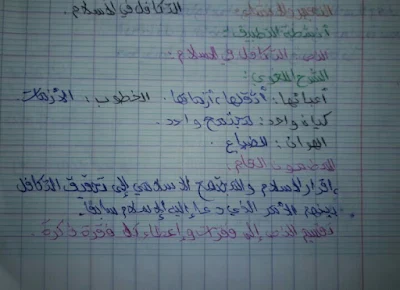 التكافل في الإسلام.
أنشطة التطبيق:
النص: التكافل في الإسلام.
الشرح اللغوي:
أعبائها: أثقالها، أزماتها. الخطوب: الأزمات
كيان واحد: مجتمع واحد.
الهوان: الضياع.
المضمون العام:
إقرار الإسلام والمجتمع الإسلامي إلى تحقيق التكافل
بينهم الأمر الذي دعا إليه الإسلام سابقا.
تقسيم النص إلى فقرات وإعطاء كل فقرة فكرة